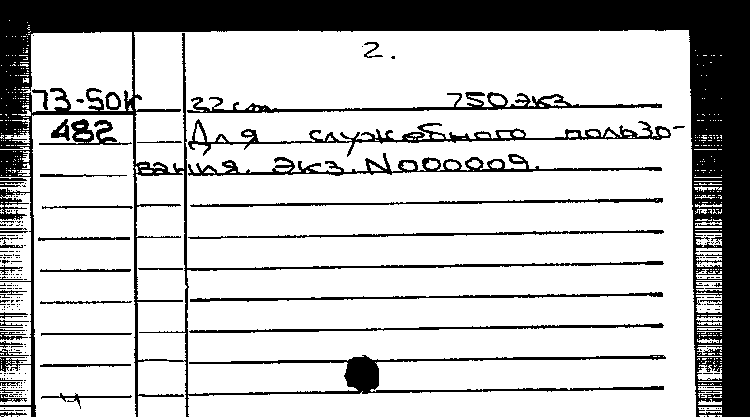 2.
73-50к 22 cm. 750 экз.
482 Для служебного пользо-
вания. Экз. N000009.
ч